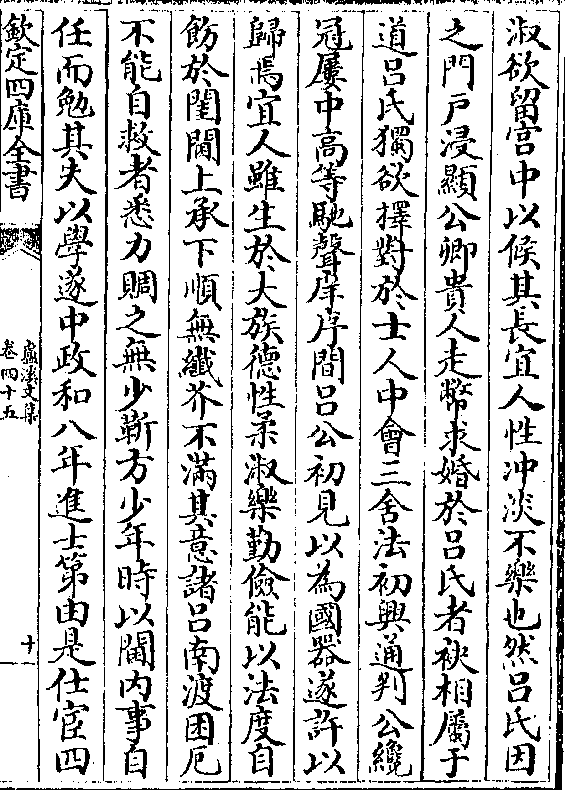 淑欲留宫中以候其長宜人性冲淡不樂也然吕氏因
之門戸浸顯公卿貴人走幣求婚於吕氏者袂相屬于
道吕氏獨欲擇對於士人中會三舍法初興通判公纔
冠屢中高等馳聲庠序間吕公初見以為國器遂許以
歸焉宜人雖生於大族德性柔淑樂勤儉能以法度自
飭於閨閫上承下順無纎芥不滿其意諸吕南渡困厄
不能自救者悉力賙之無少靳方少年時以閫内事自
任而勉其夫以學遂中政和八年進士第由是仕宦四
欽定四庫全書
盧溪文集
卷四十五
十